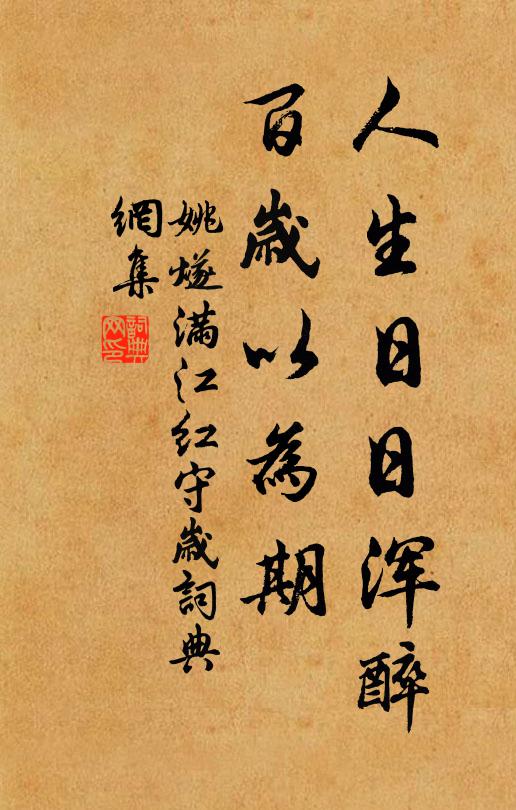 人生日日浑醉
百歲以為期
姚燧滿江紅守歲詞典
網集
詞典网印